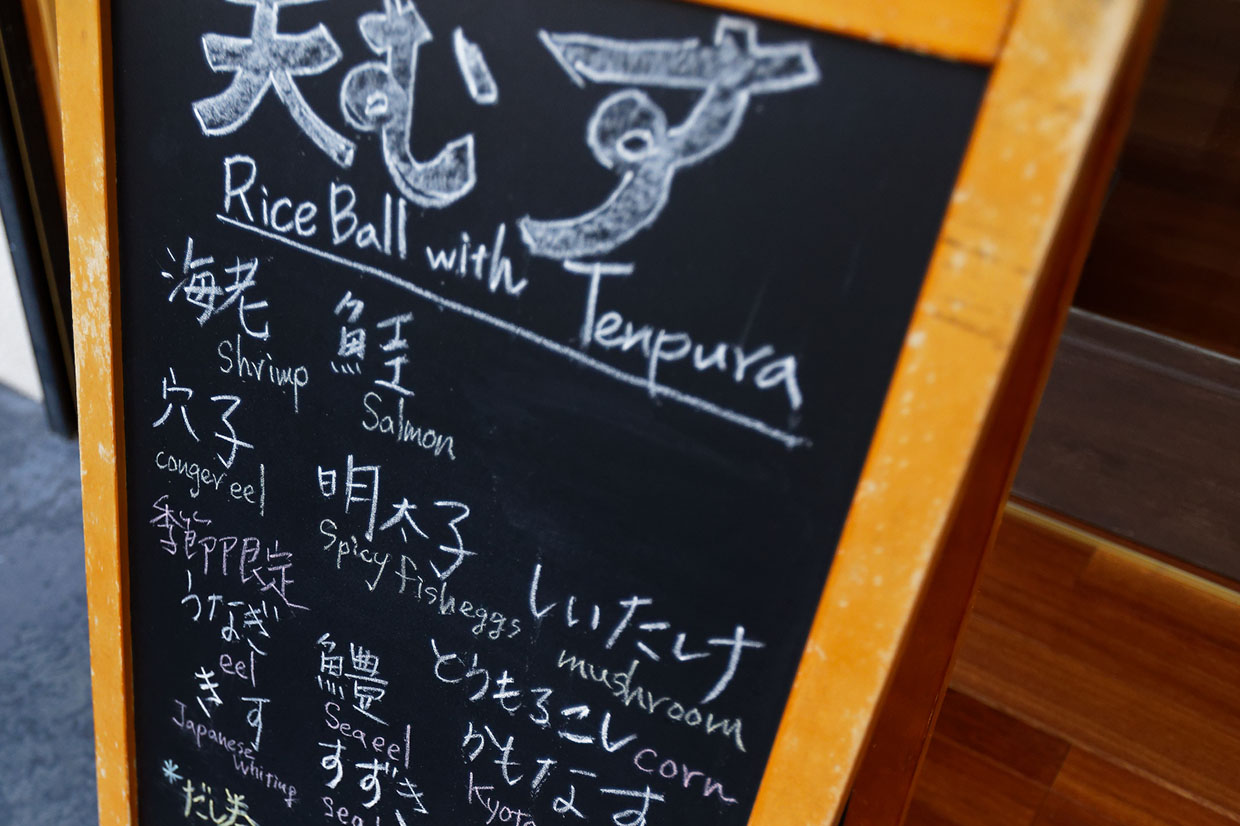 天むす
Rice Ball with Tenpura
海老
Shrimp
鮭
Salmon
穴子
conger eel
明太子
Spicy fish eggs
季節限定
うなぎ
eel
きす
Japanese Whiting
鱧
Sea eel
すずき
しいたけ
mushroom
とうもろこし
corn
かもなす
*だし巻